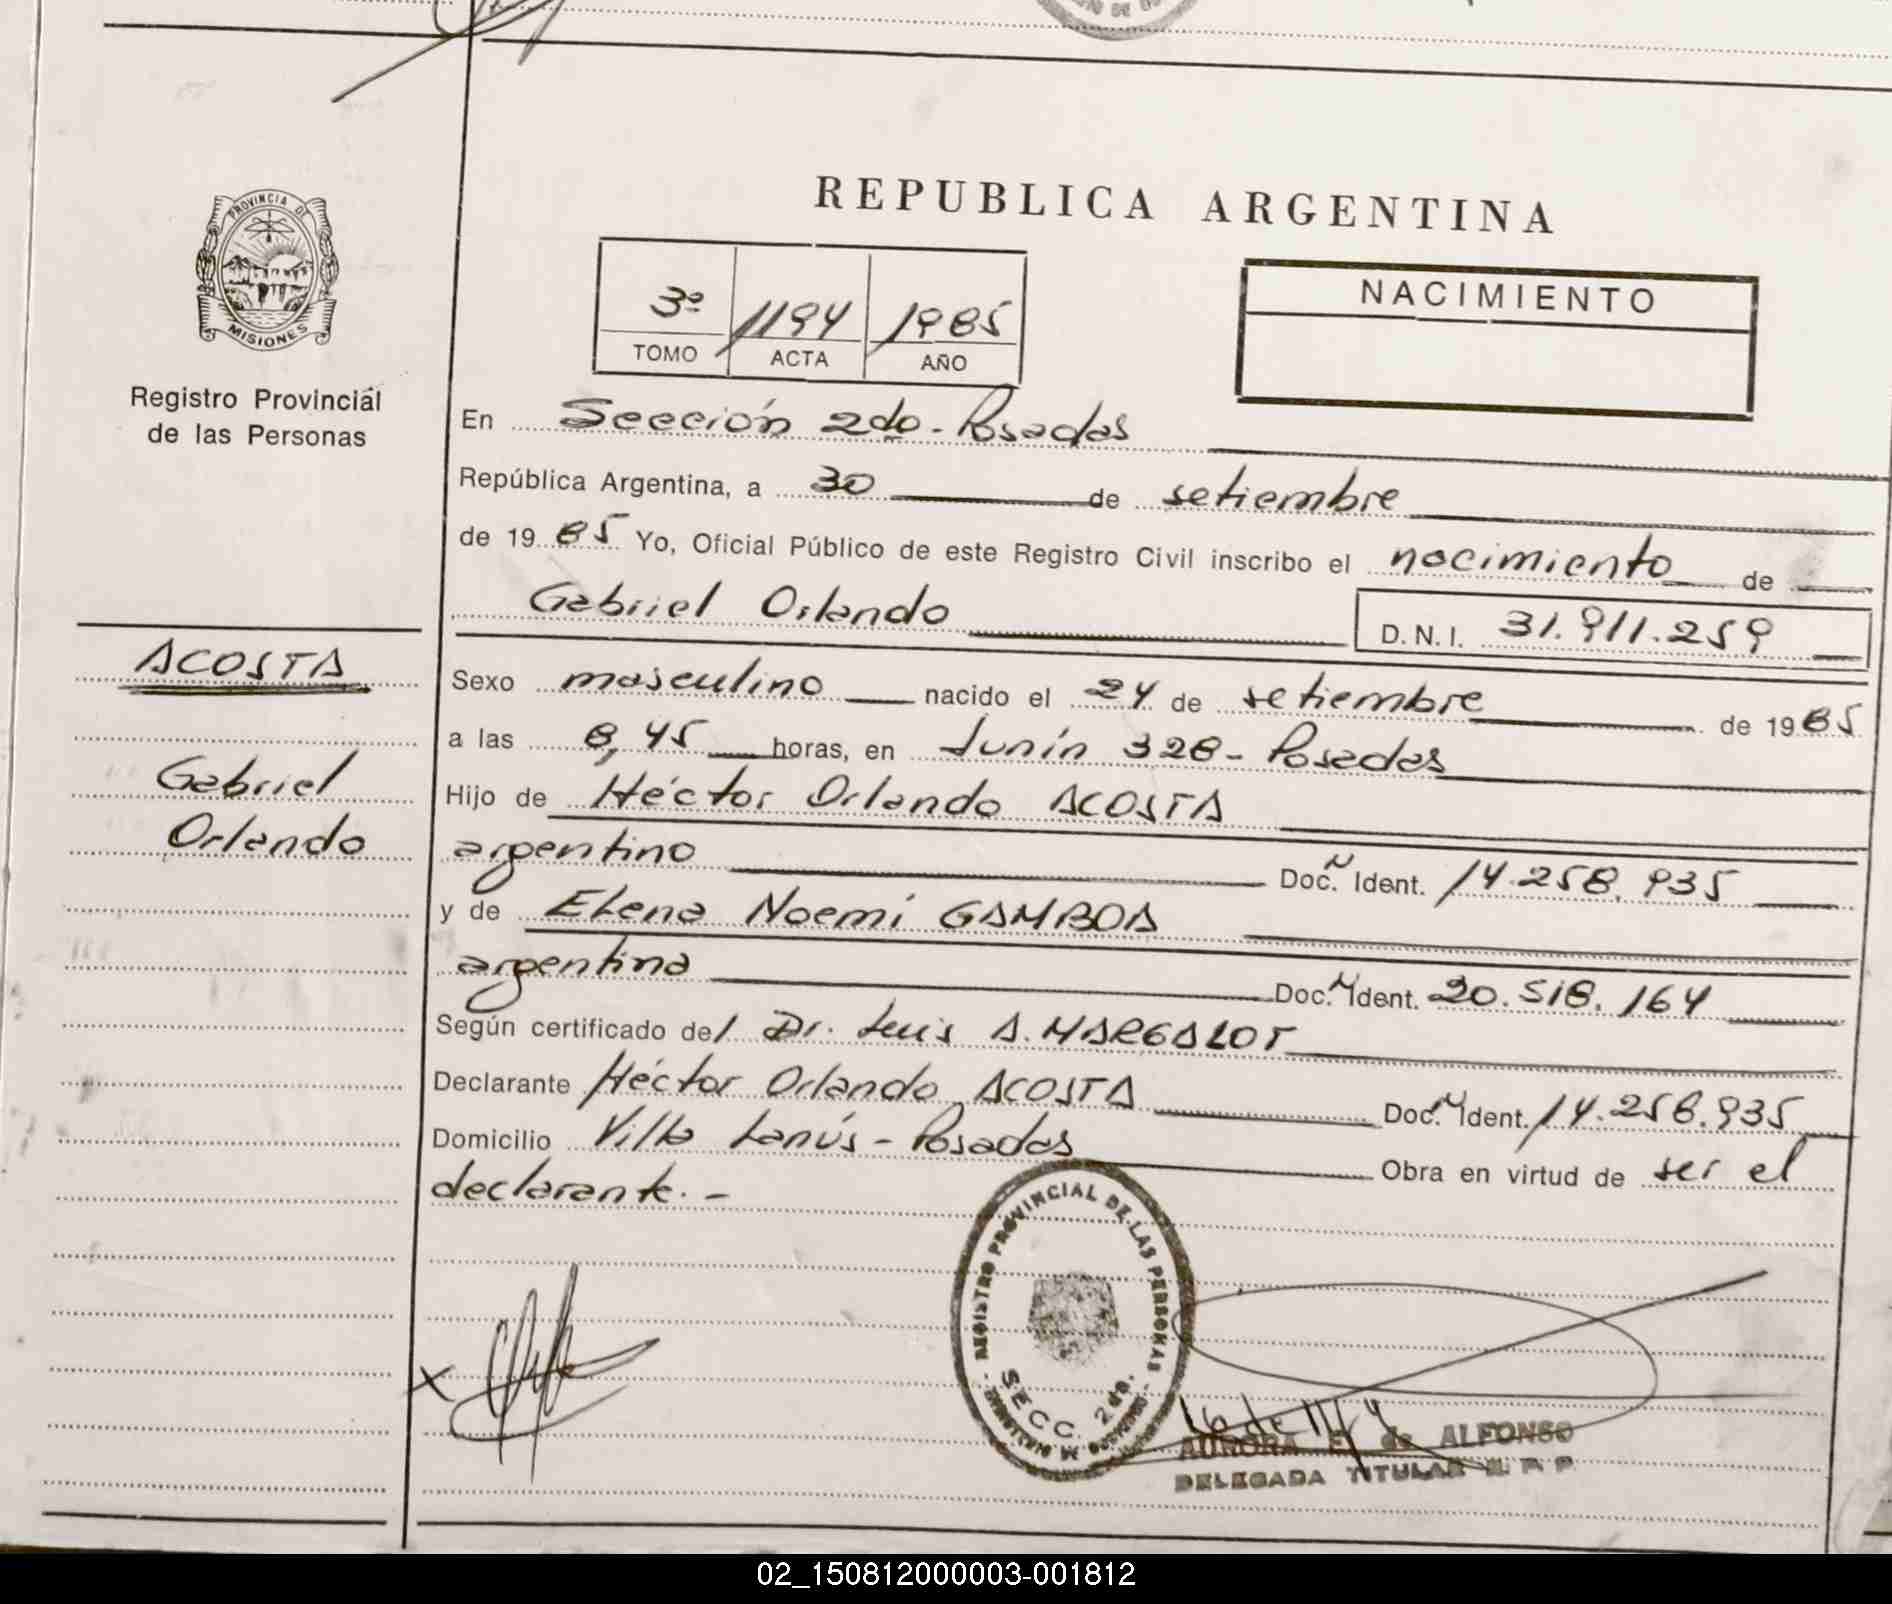 PROVINCIA DE
MISIONES
Registro Provincial
de las Personas
ACOSTA
Gabriel
Orlando
REPUBLICA ARGENTINA
3º 1194 1985
TOMO ACTA AÑO
NACIMIENTO
En Sección 2da - Posadas
República Argentina, a 30 de setiembre
de 1985 Yo, Oficial Público de este Registro Civil inscribo el nacimiento de
Gabriel Orlando D.N.I. 31.911.259
Sexo masculino nacido el 24 de setiembre de 1985
a las 8,45 horas, en Junín 328 - Posadas
Hijo de Héctor Orlando ACOSTA
argentino Doc. Ident. 14.258.935
y de Elena Noemí GAMBOA
argentina Doc. Ident. 20.518.164
Según certificado del Dr. Luis A. MARGALOT
Declarante Héctor Orlando ACOSTA Doc. Ident. 14.258.935
Domicilio Villa Lanús - Posadas Obra en virtud de ser el
declarante. -
REGISTRO PROVINCIAL DE LAS PERSONAS
SECC. 2da.
AURORA de ALFONSO
DELEGADA TITULAR
02_150812000003-001812